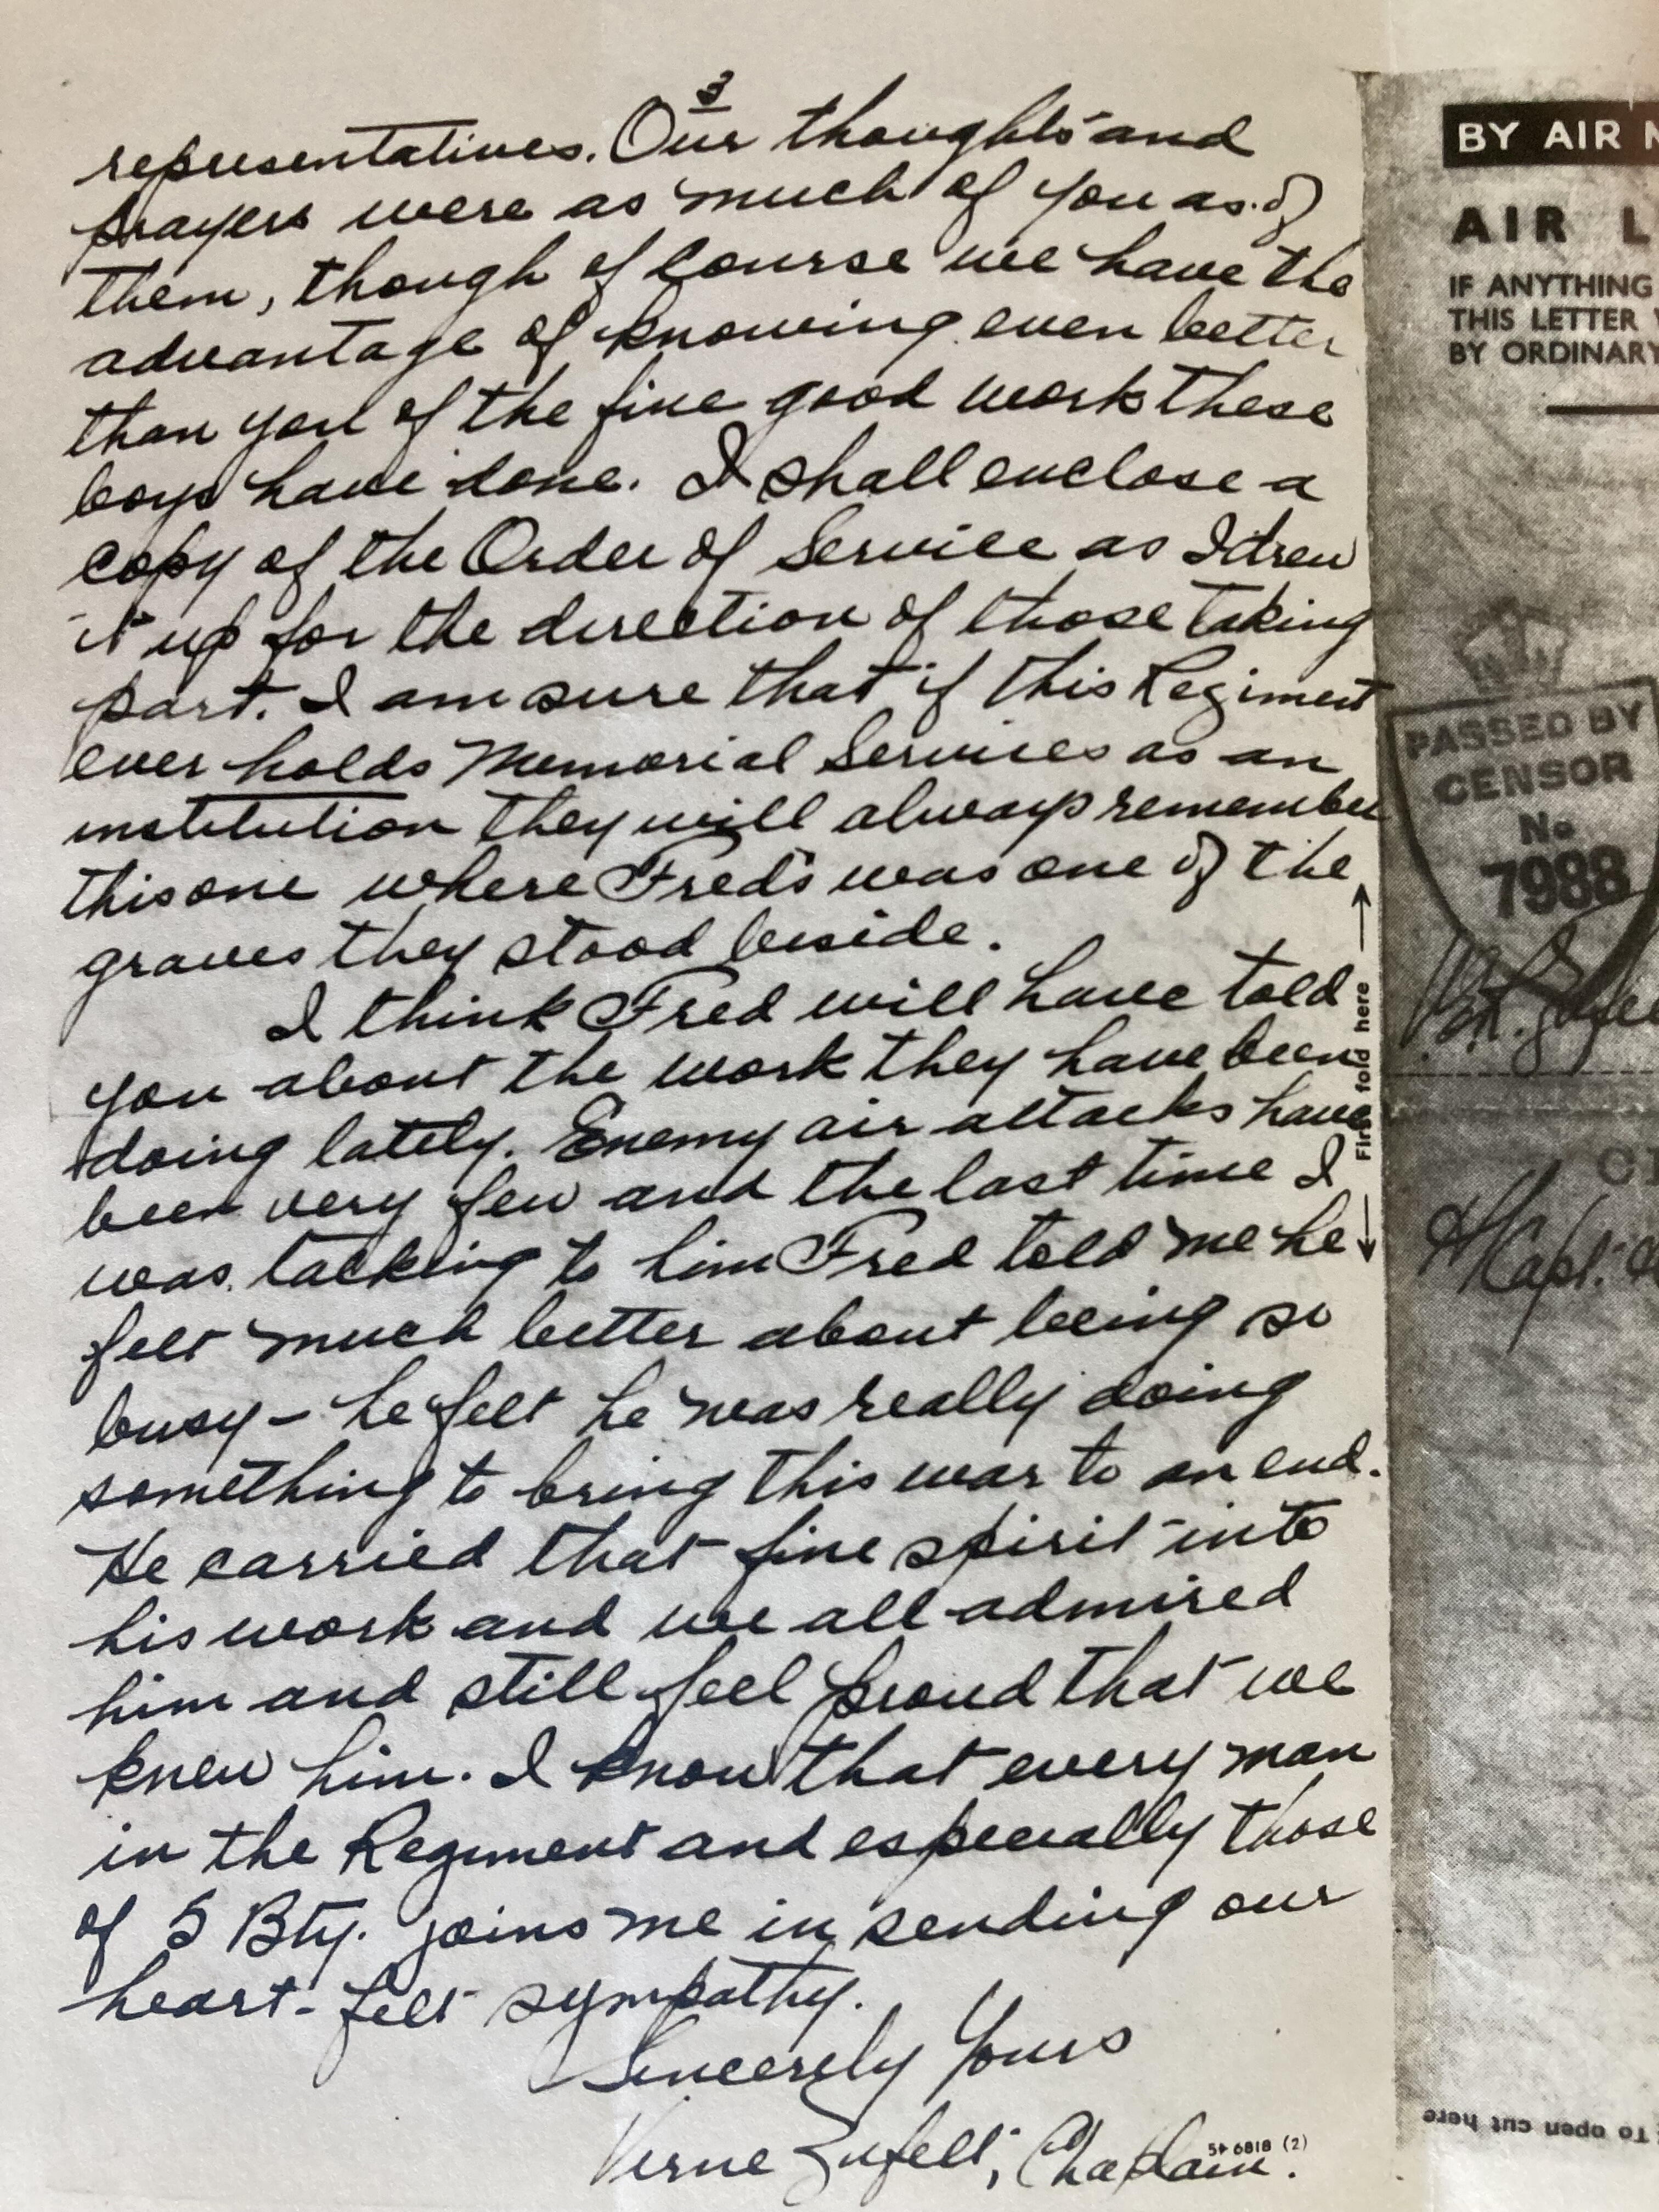 3
representatives. Our thoughts and
prayers were as much of you as of
them, though of course we have the
advantage of knowing even better
than you of the fine good work these
boys have done. I shall enclose a
copy of the Order of Service as I drew
it up for the direction of those taking
part. I am sure that if this Regiment
ever holds Memorial Services as an
institution they will always remember
this one where Fred's was one of the
graves they stood beside.
I think Fred will have told
you about the work they have been
doing lately. Enemy air attacks have
been very few and the last time I
was talking to him Fred told me he
felt much better about being so
busy - he felt he was really doing
something to bring this war to an end.
He carried that fine spirit into
his work and we all admired
him and still feel proud that we
knew him. I know that every man
in the Regiment and especially those
of 5 Bty. joins me in sending our
heart-felt sympathy.
Sincerely Yours
Verne Zufelt, Chaplain.
51-6818 (2)
First fold here
BY AIR M
AIR L
IF ANYTHING
THIS LETTER
BY ORDINARY
PASSED BY
CENSOR
No
7988
H/Capt.
To open cut here